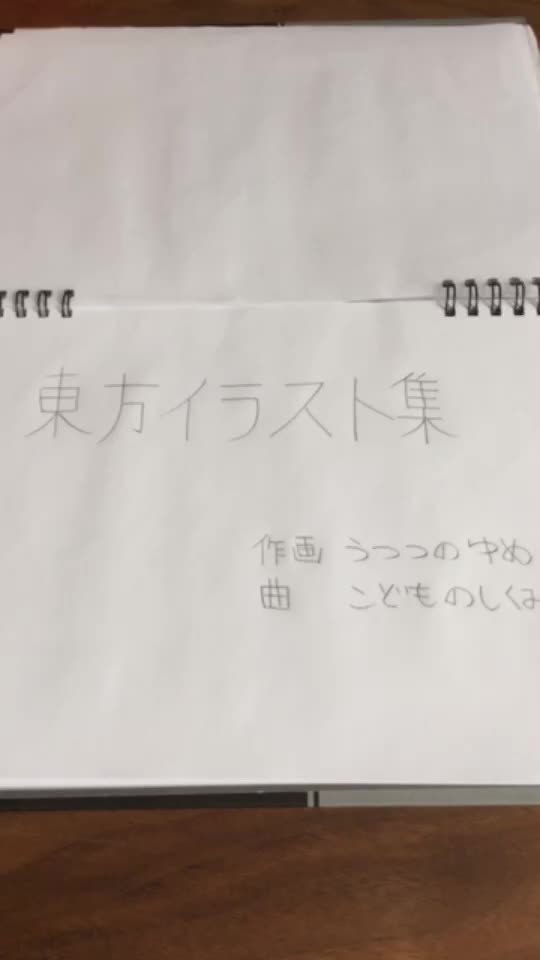 東方イラスト集
作画 うつつのゆめ
曲 こどものしくみ